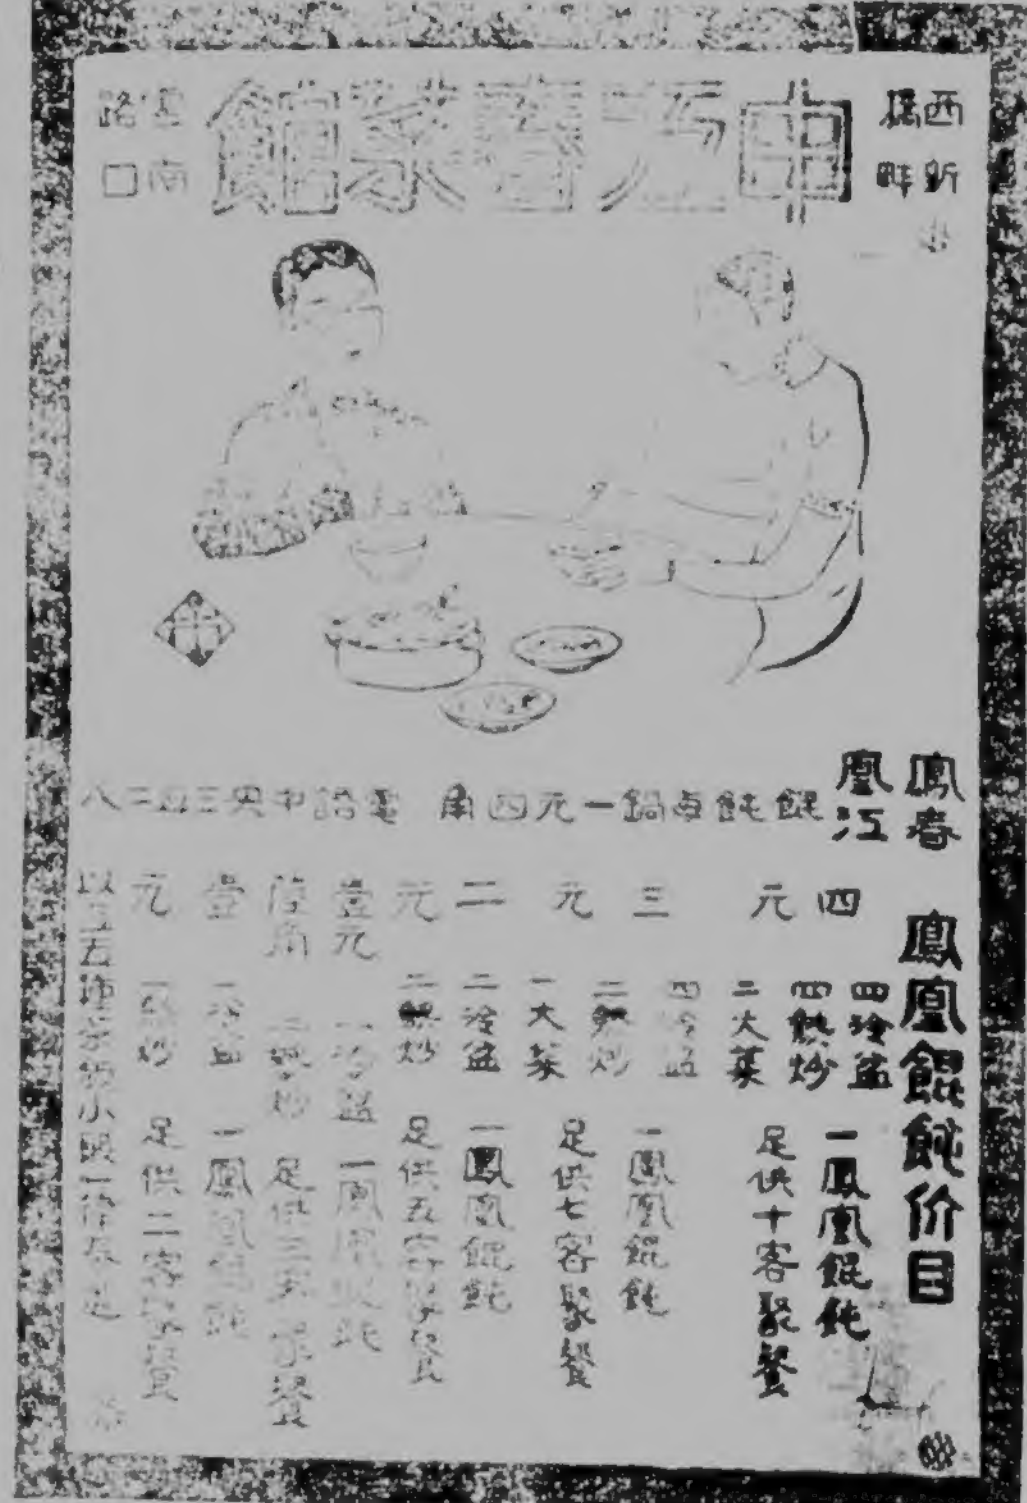 西新
橋畔
申江春菜館
雲南
路口
春江
鳳凰
鳳凰餛飩价目
餛飩卓鍋一元四角 電話中央三四二八
四元
四冷盆
四熱炒
二大菜
一鳳凰餛飩
足供十客聚餐
三元
四冷盆
二熱炒
一大菜
一鳳凰餛飩
足供七客聚餐
二元
二冷盆
二熱炒
一鳳凰餛飩
足供五客聚餐
壹元
陸角
一冷盆
二熱炒
一鳳凰餛飩
足供三客聚餐
壹元
一冷盆
一熱炒
一鳳凰餛飩
足供二客聚餐
以上五種